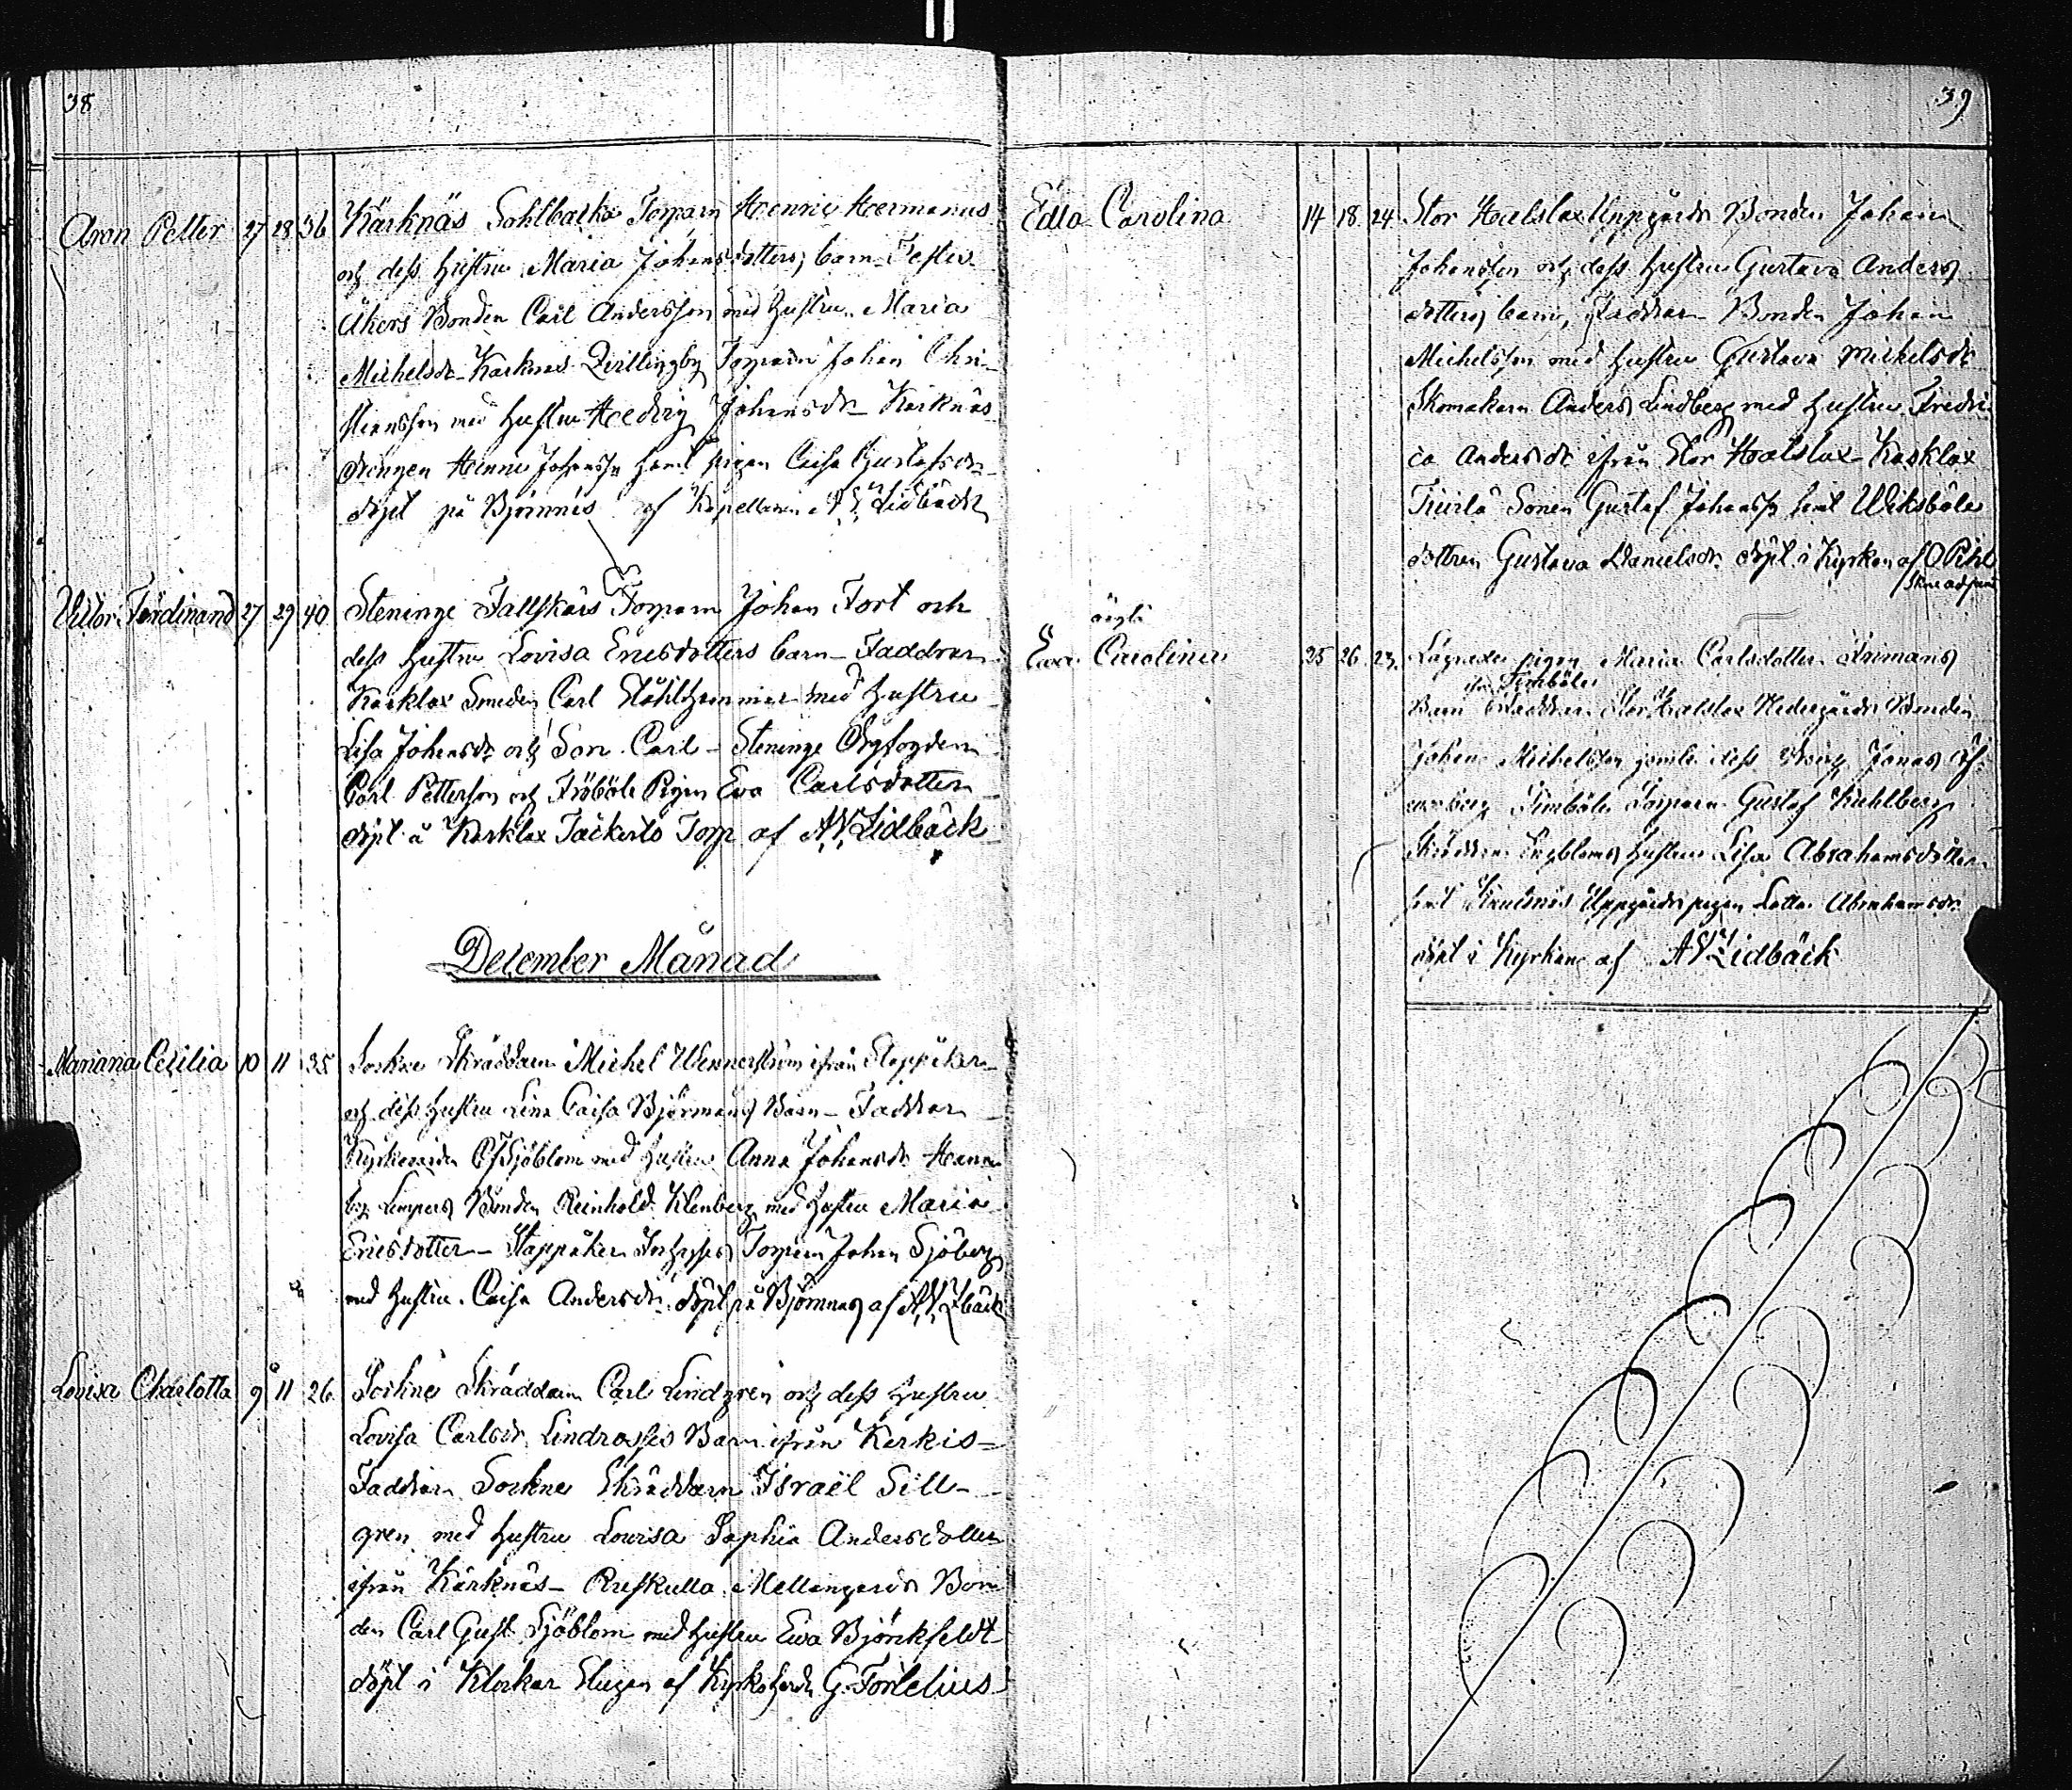 38
Aron Petter 27 28 36 Kärknäs Sahlbacka Torparn Henric Hermanus
och dess hustru Maria Johansdotters barn
åkers Bonden Carl Andersson med hustru Maria
Michelsdr Karknäs Torparn Johan Chri-
stiansson med hustru Hedvig Johansdr Kärknäs
drängen Johansson samt pigan Caisa Gustafsdr
döpt på Björnnäs af Kapellanen A V Lidbäck
Victor Ferdinand 27 29 40 Steninge Fallskärs Torparn Johan Fort och
dess hustru Lovisa Ericsdotters barn Faddrar
Karklax Smeden Carl Ståhlhammar med hustru
Lisa Johansdr och Son Carl Steninge
Carl Petterson och Fröböle Pigan Eva Carlsdotter
döpt å Karklax Täckerlö Torp af A V Lidbäck
December Månad
Mariana Cecilia 10 11 35 Sockne Skräddarn Michel Wennerström ifrån
och dess hustru Lena Caisa Björmans Barn Faddrar
Sjöblom med hustru Anna Johansdr
Bonden Reinhold med hustru Maria
Ericsdotter Torparn Johan Sjöberg
med hustru Caisa Andersdr döpt på Björnnäs af A V Lbäck
Lovisa Charlotta 9 11 26 Sockne Skräddarn Carl Lindgren och dess hustru
Lovisa Carlsdr Lindroses Barn ifrån Kerkis
Faddrar Sockne Skräddarn Israël Sill-
gren med hustru Lovisa Sophia Andersdotter
ifrån Kärknäs Mellangårds Bon
den Carl Gust Sjöblom med hustru Ewa Björkfeldt
döpt i Klockar Stugan af Kyrkoherden G. Fortelius
39
Edla Carolina 14 18 24 Stor Haelslax Uppgårds Bonden Johan
Johansson och dess hustru Gustava Anders
dotters barn, Faddrar Bonden Johan
Michelsson med hustru Gustava Michelsdr
Skomakarn Anders Lindberg med hustru Fredri
ca Andersdr ifrån Stor Haelslax Karklax
Sonen Gustaf Johansson samt Wiksböle
dottren Gustava Danielsdr döpt i Kyrkan af
oägta
Eva Carolina 25 26 23 Lägrade pigan Maria Carlsdotter
ifrån Finnböle
Barn Faddrar Stor Haelslax Nedergårds Bonden
Johan Michelsson jemte dess dräng Jonas
Torparn Gustaf
hustru Lisa Abrahamsdotter
samt Uppgårds pigan Lotta Abrahamsdr
döpt i Kyrkan af A V Lidbäck